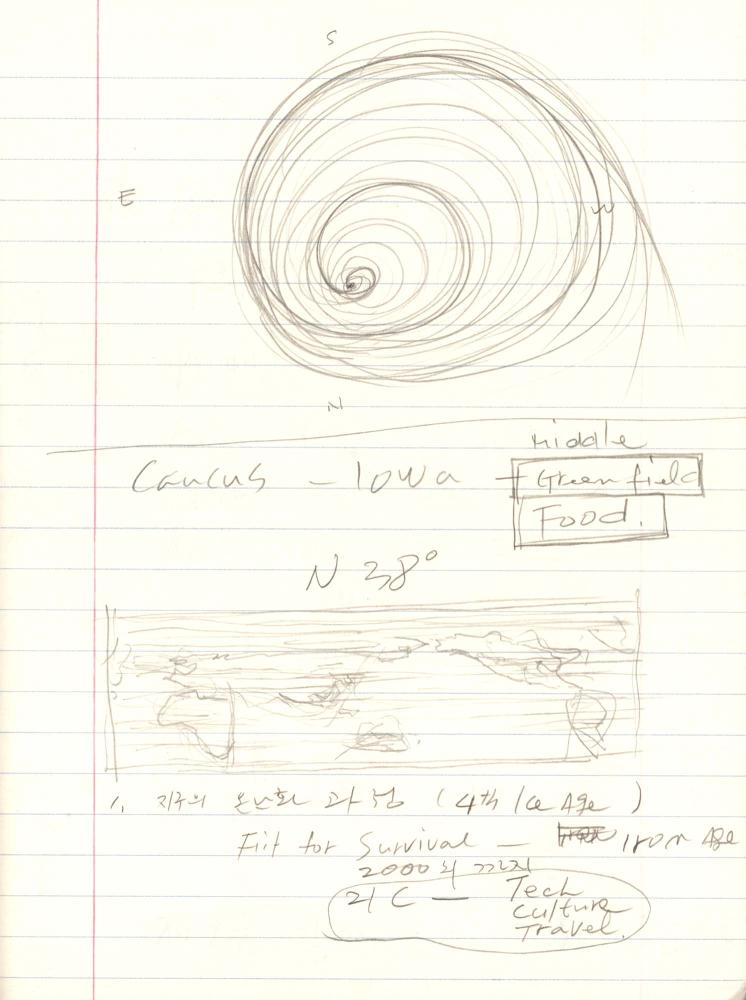 S
E
W
N
Middle
Caucus – Iowa – Green field
Food.
N 38°
1. 지구의 온난화 과정 (4th Ice Age)
Fiit for Survival – Iron Age
2000년 까지
21C — Tech
Culture
Travel.